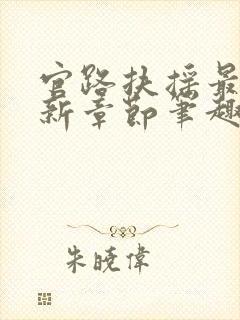 官路扶摇最
新章节笔趣
朱晓伟